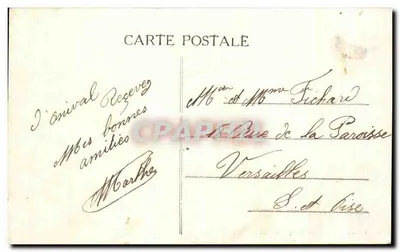 CARTE POSTALE
d'Onival Recevez
Mes bonnes
amitiés
Marthe
et Mme Fichard
Rue de la Paroisse
Versailles
S. et Oise